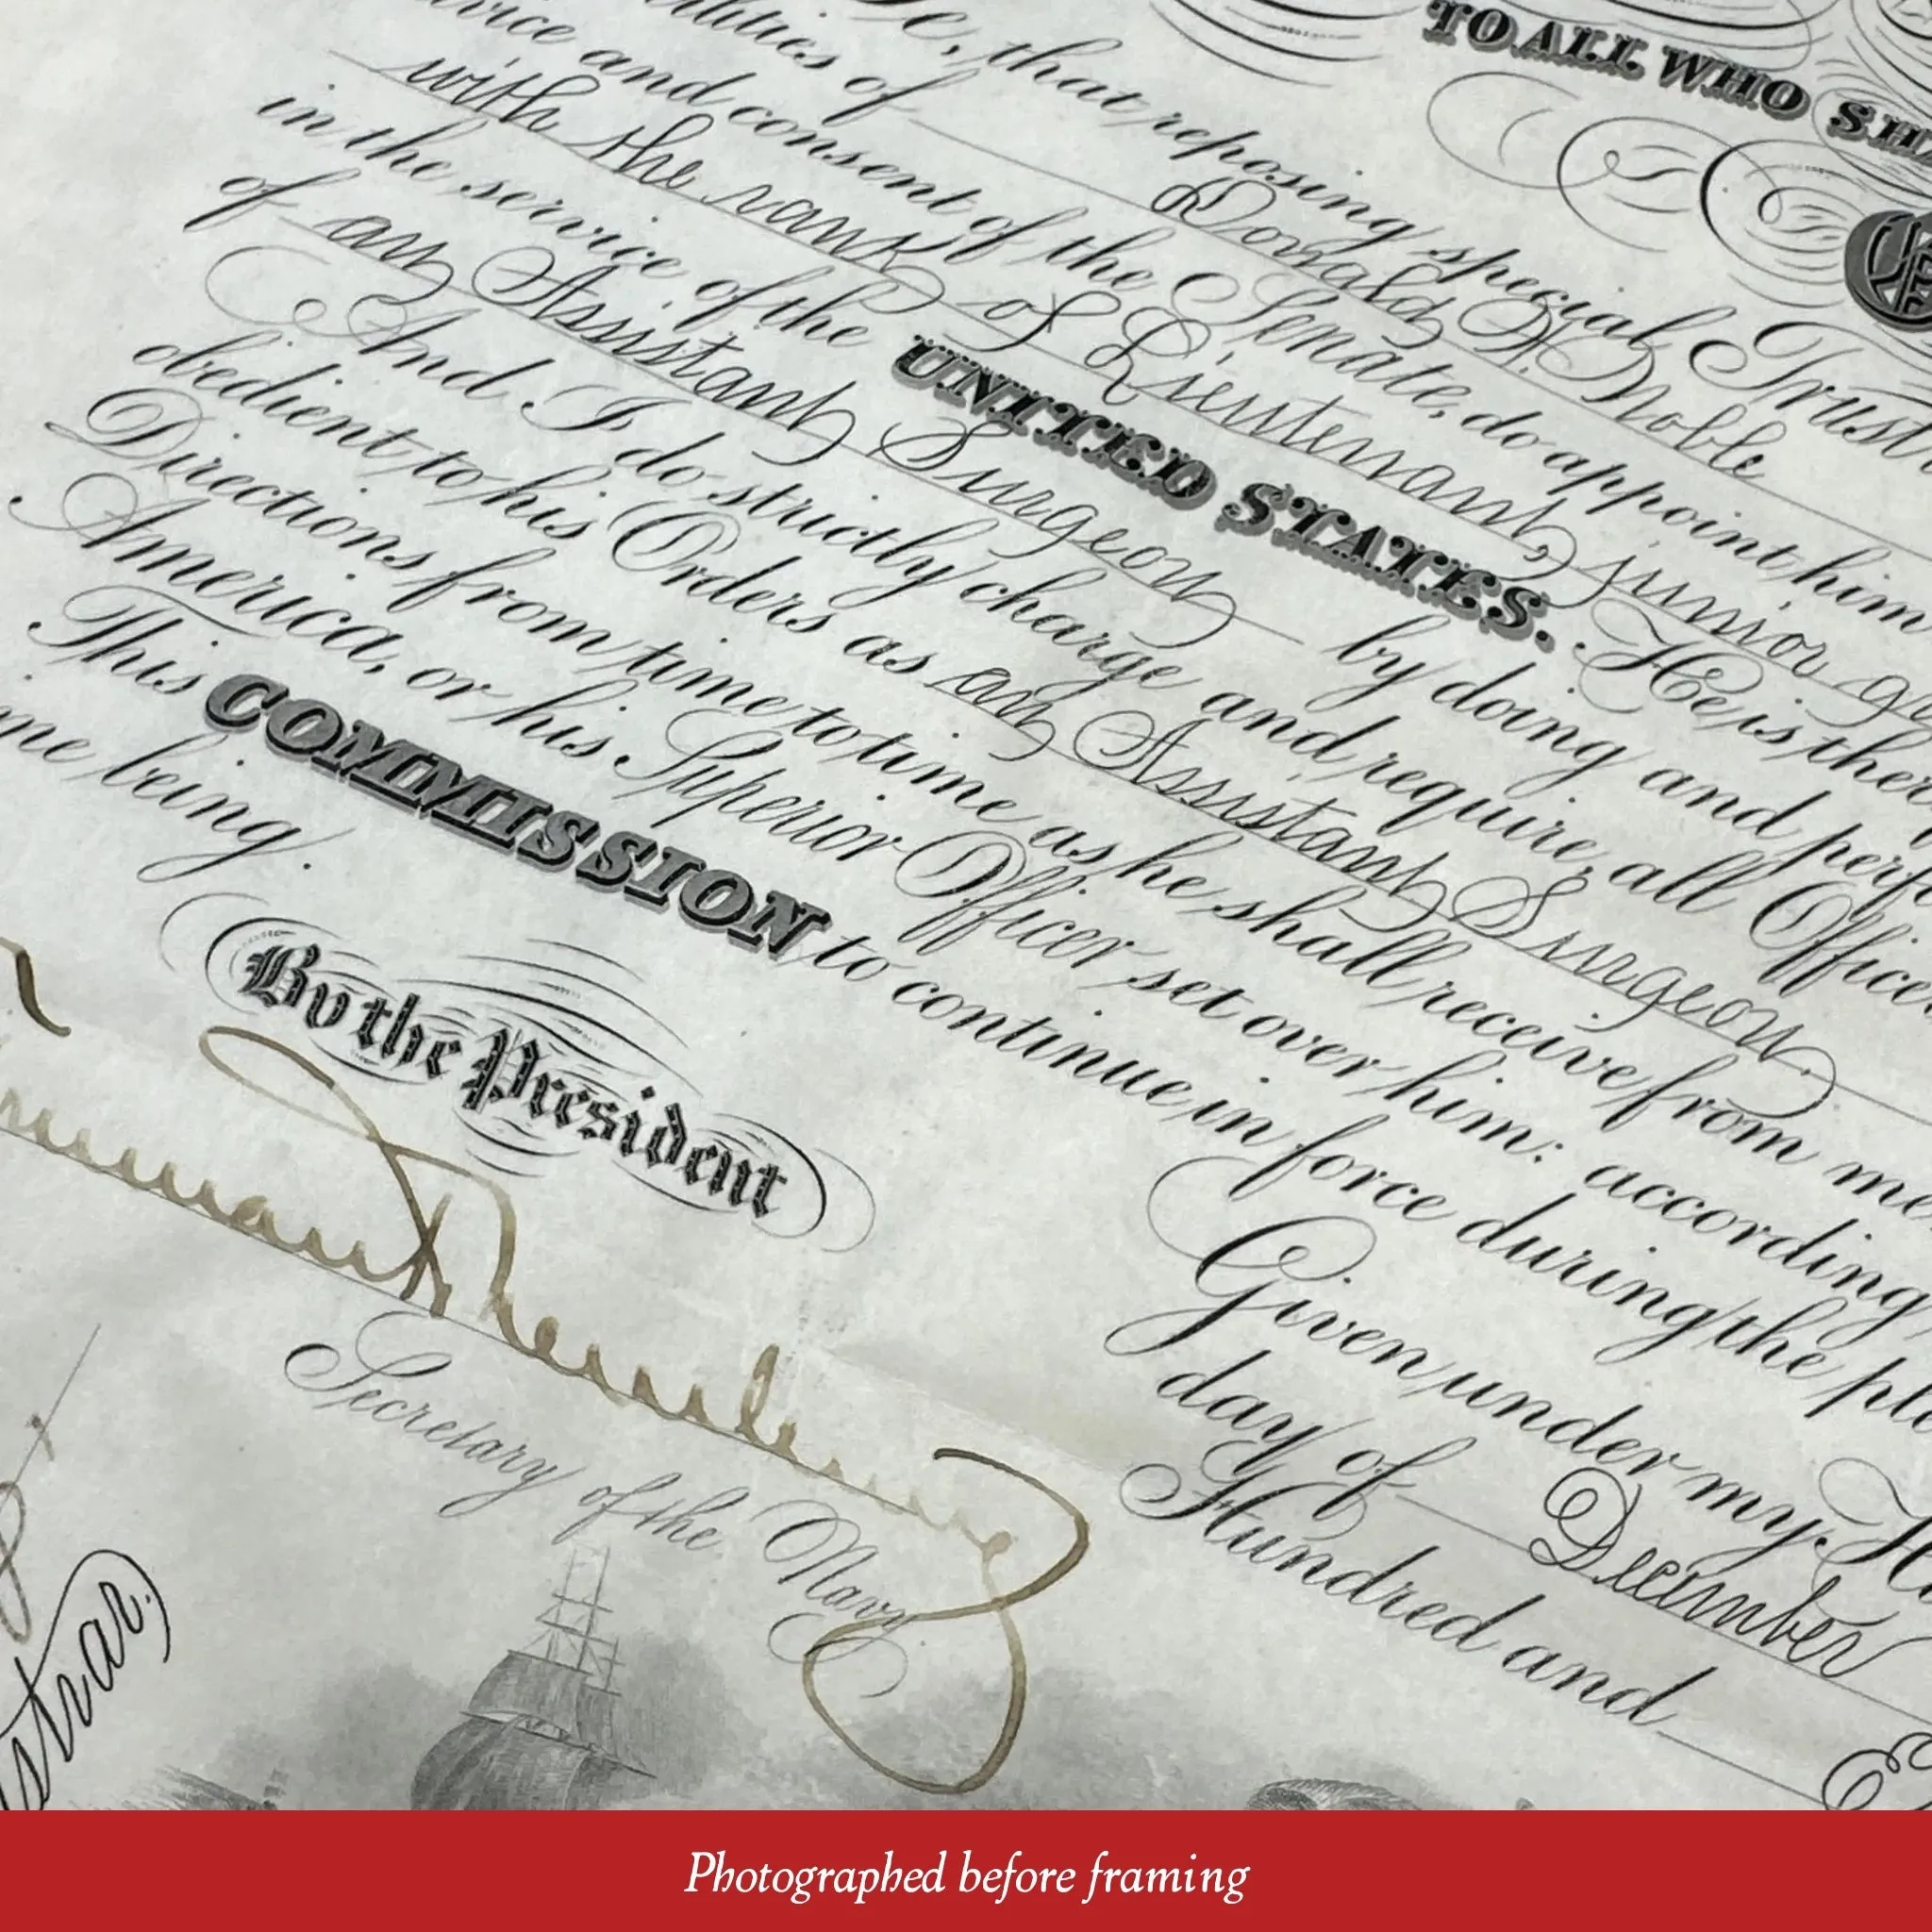 TO ALL WHO SHA
e, that reposing special Trust
ilities of Donald Noble
vice and consent of the Senate, do appoint him
with the rank of Lieutenant, junior gr
in the service of the UNITED STATES. He is there
of an Assistant Surgeon by doing and perf
And I do strictly charge and require, all Office
obedient to his Orders as an Assistant Surgeon.
Directions from time to time as he shall receive from me
America, or his Superior Officer set over him: according
This COMMISSION to continue in force during the pl
me being.
Given under my Ha
day of December
Hundred and
By the President
Secretary of the Navy.
strar.)
Photographed before framing